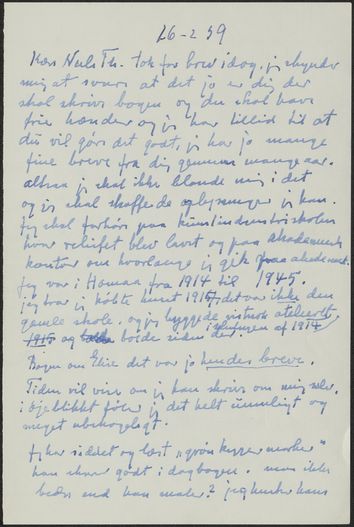 26-2 59
Kære Niels Th. tak for brev i dag, jeg skynder
mig at svare at det jo er dig der
skal skrive bogen og du skal have
frie hænder og jeg har tillid til at
du vil gøre det godt, jeg har jo mange
fine breve fra dig gennem mange aar.
altsaa jeg skal ikke blande mig i det
og jeg skal skaffe de oplysninger jeg kan.
jeg skal forhøre paa kunstindustriskolen
hvor relieffet blev lavet og paa akademiets
kontor om hvorlænge jeg gik paa akademiet.
Jeg var i Hornæs fra 1914 til 1945.
jeg tror jeg købte huset 1915, det var ikke den
gamle skole. og jeg byggede atelieret
i slutningen af 1914
1915 og boede siden der.
Bogen om Elise det var jo hendes breve.
Tiden vil vise om jeg kan skrive om mig selv.
i øjeblikket føler jeg det helt umuligt og
meget ubehageligt.
jeg har siddet og læst "grønlygger mørke"
han skrev godt i dagbogen. men ikke
bedre end han maler? jeg husker hans